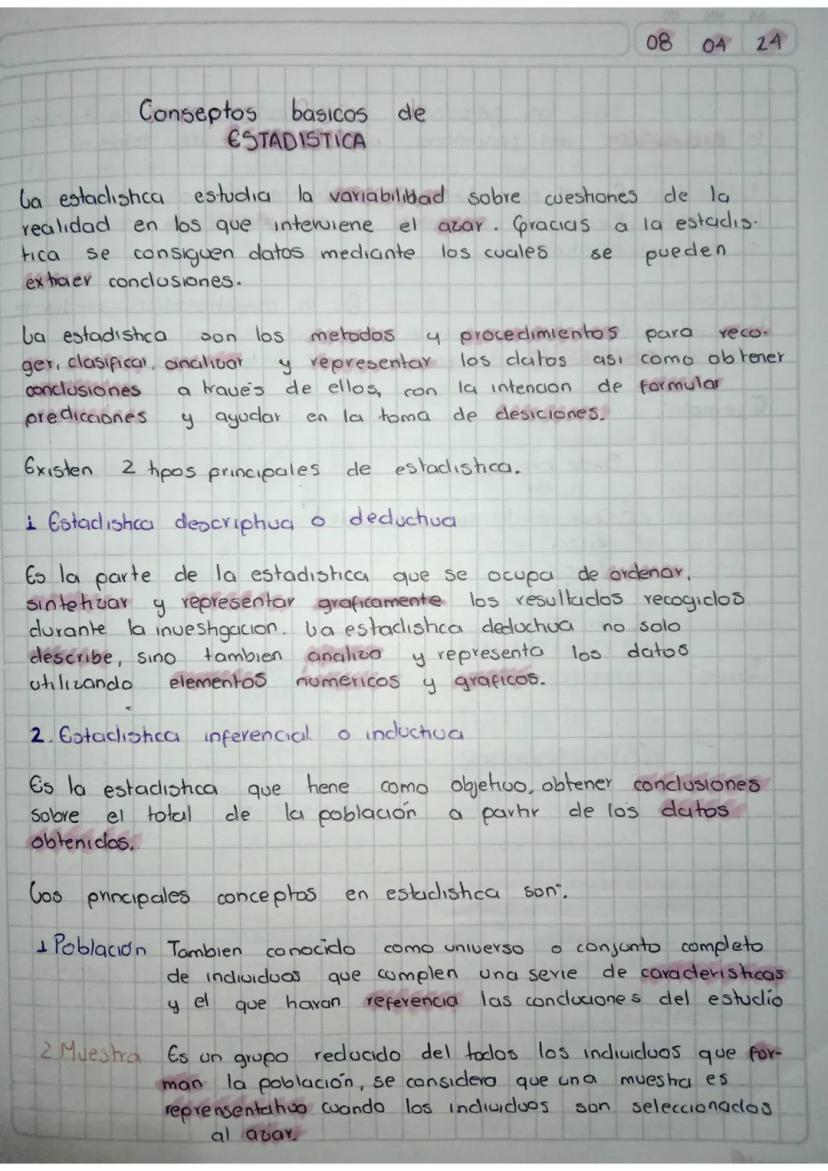 08 04 24
Conseptos basicos de
ESTADISTICA
La estadistica estudia la variabilidad sobre cuestiones de la
realidad en los que interviene el azar. Gracias a la estadis-
tica se consiguen datos mediante los cuales se pueden
extraer conclusiones.
La estadistica son los metodos y procedimientos para reco-
ger, clasificar, analizar y representar los datos asi como obtener
conclusiones a través de ellos, con la intencion de formular
predicciones y ayudar en la toma de desiciones.
Existen 2 tipos principales de estadistica.
1 Estadistica descriptiva o deductiva
Es la parte de la estadistica que se ocupa de ordenar,
sintetizar y representar graficamente los resultados recogidos
durante la investigacion. La estadistica deductiva no solo
describe, sino tambien analiza y representa los datos
utilizando elementos numericos y graficos.
2. Estadistica inferencial o inductiva
Es la estadistica que tiene como objetivo, obtener conclusiones
sobre el total de la población a partir de los datos
obtenidos.
Los principales conceptos en estadistica son:
1 Población Tambien conocido como universo o conjunto completo
de individuos que cumplen una serie de caracteristicas
y el que haran referencia las conclusiones del estudio
2 Muestra Es un grupo reducido del todos los individuos que for-
man la población, se considera que una muestra es
reprensentativa cuando los individuos son seleccionados
al azar.